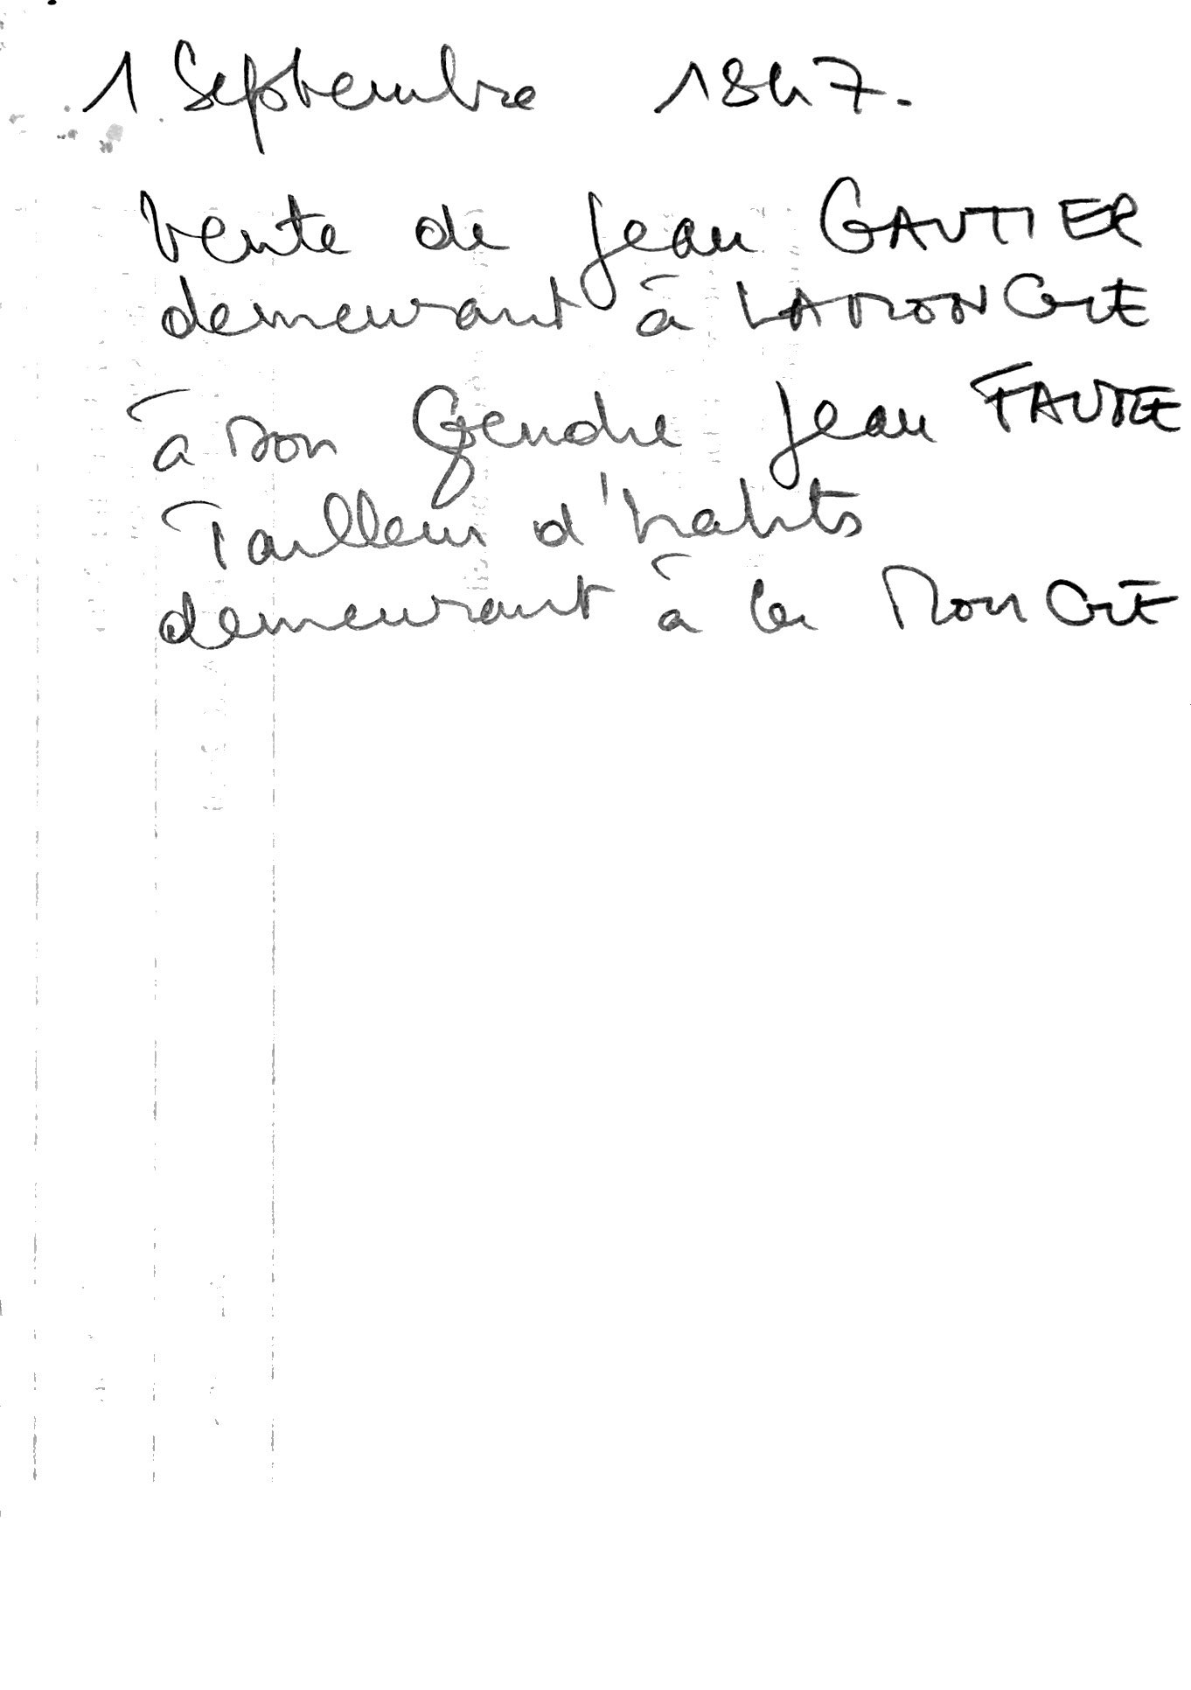 1 Septembre 1847.
Vente de Jean GAUTIER
demeurant à LARONGÈE
à son Gendre Jean FAURE
Tailleur d'habits
demeurant à la RONGÈE